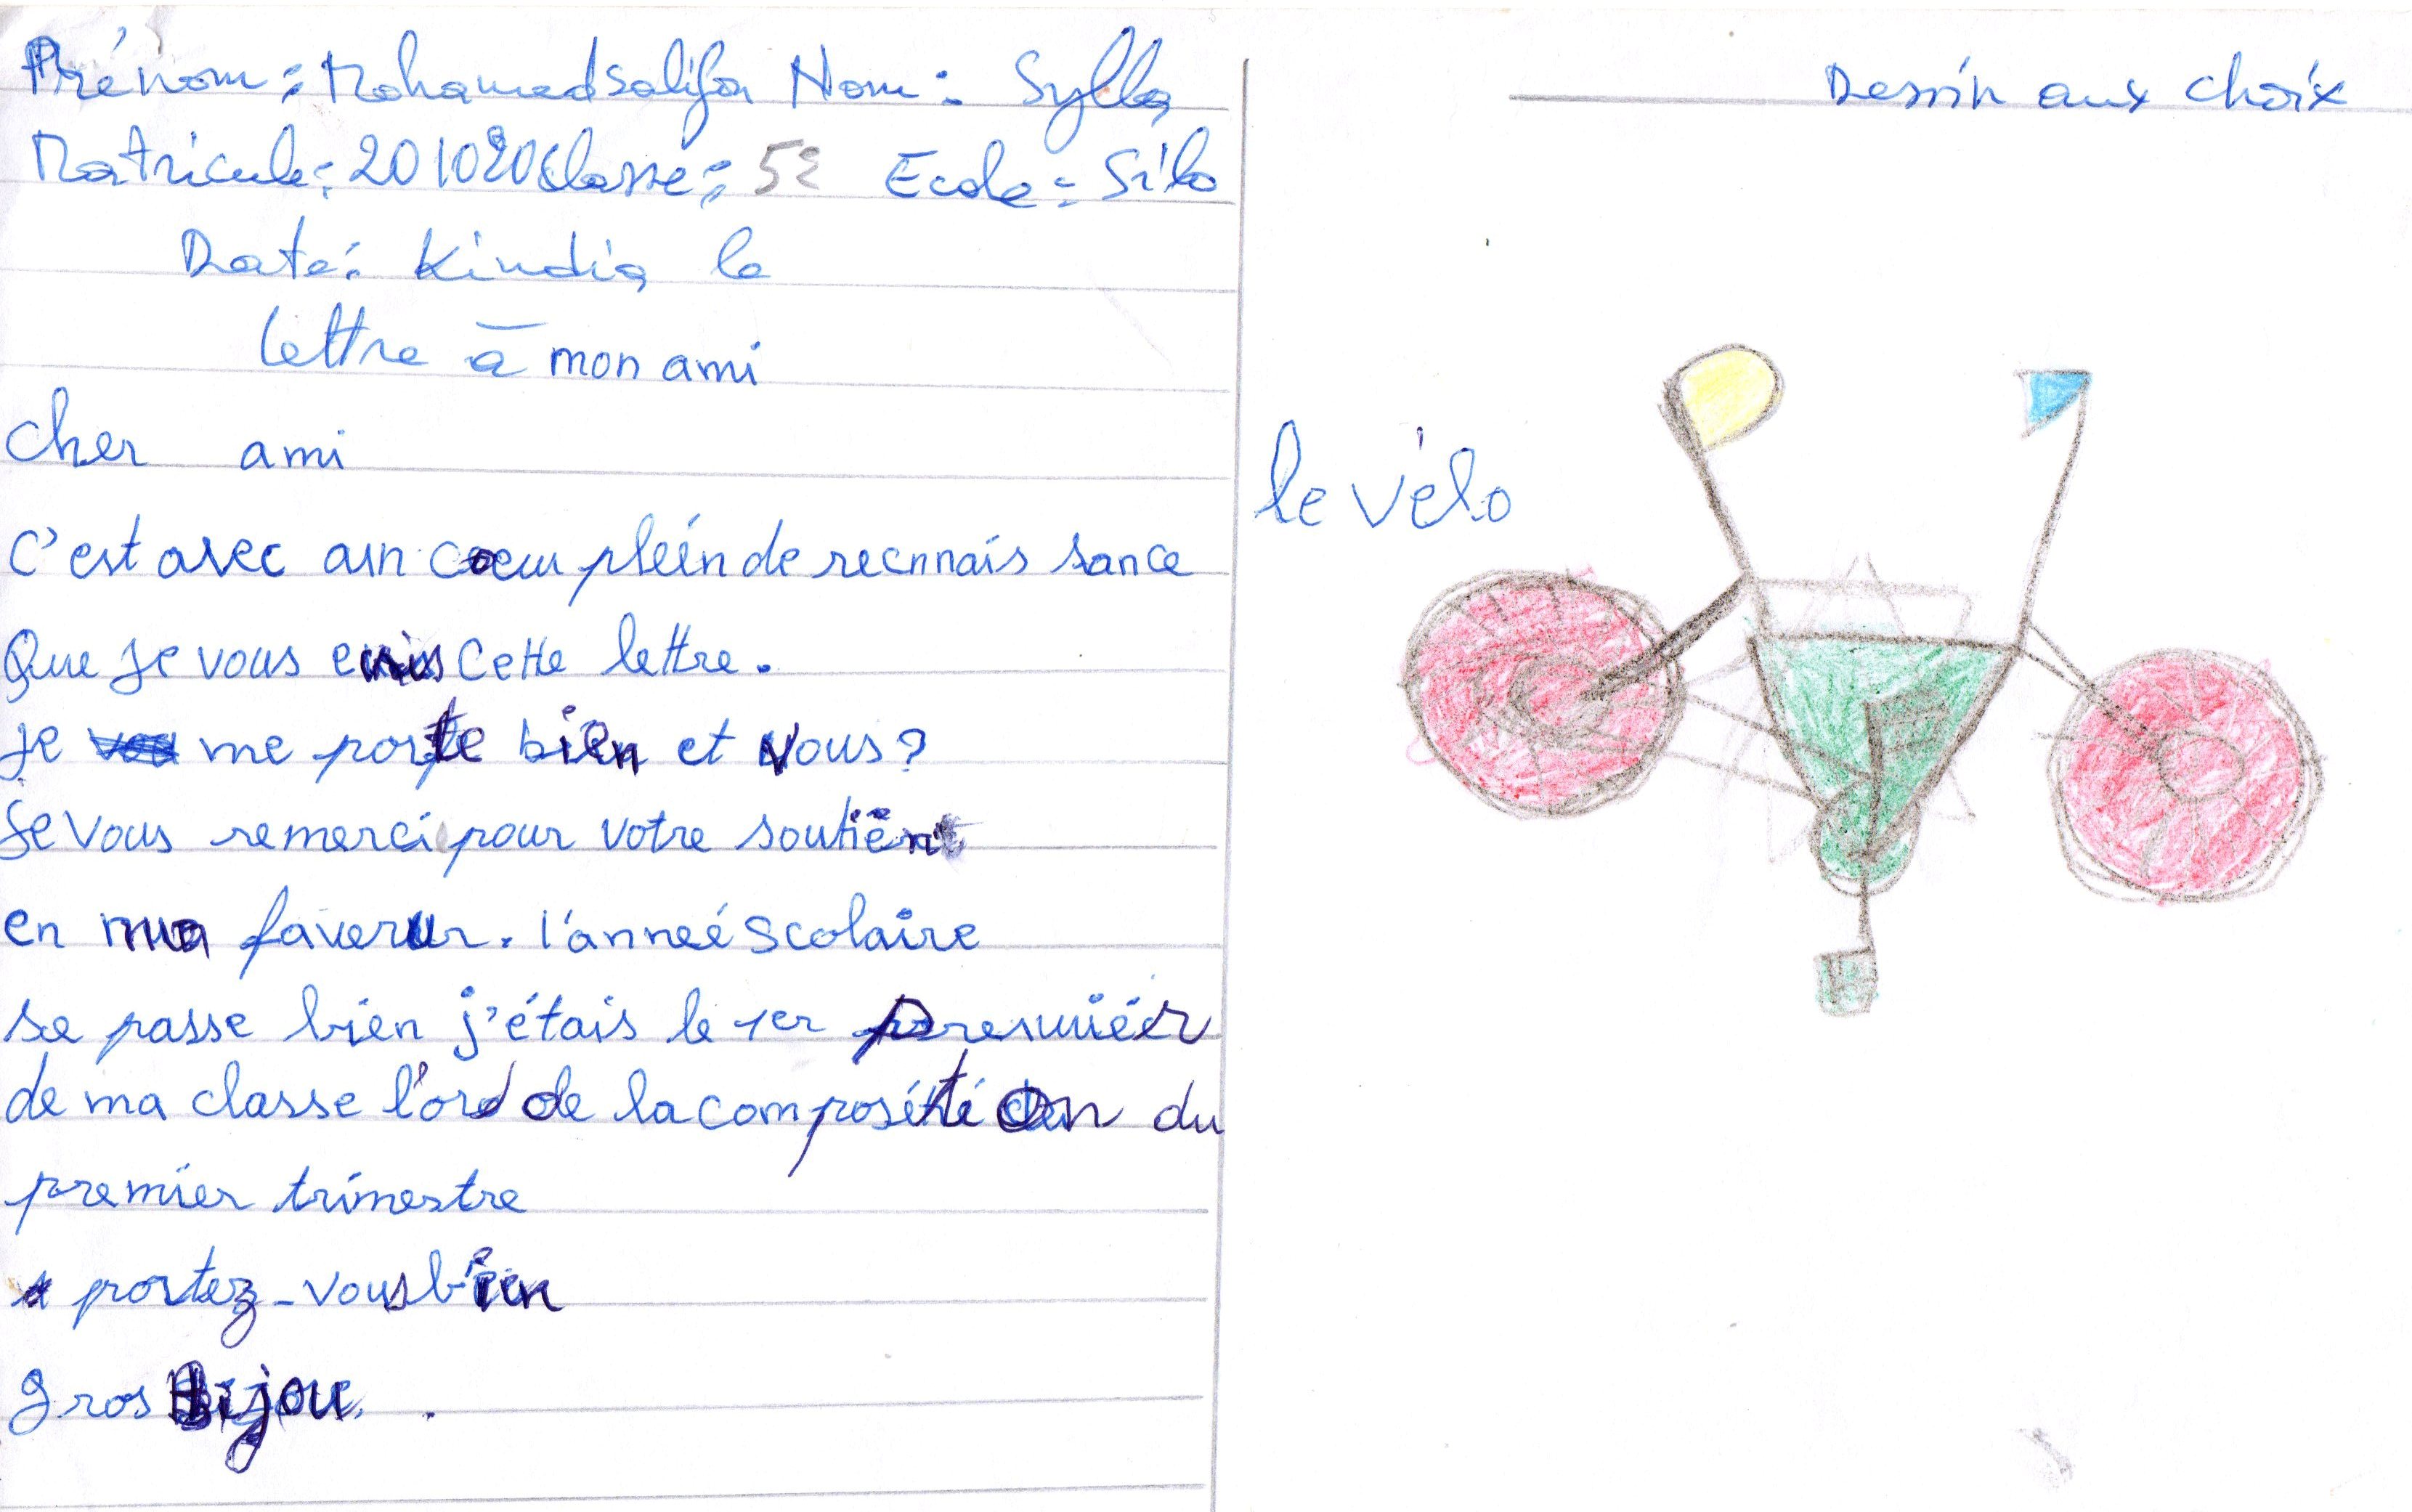 Prénom: Mohamedsalifou Nom: Sylla
Matricule: 201020 classe: 5e Ecole: Silo
Date: Kindia le
lettre à mon ami
Cher ami
C'est avec un coeur plein de recnnais sance
Que je vous envis Cette lettre.
je me porte bien et vous?
Je vous remerci pour votre soutien
en ma faveur. l'anneé scolaire
se passe bien j'étais le 1er premiér
de ma classe l'ord de la composétion du
premier trimestre
portez-vous bien
gros Bijou.
Dessin aux choix
le vélo